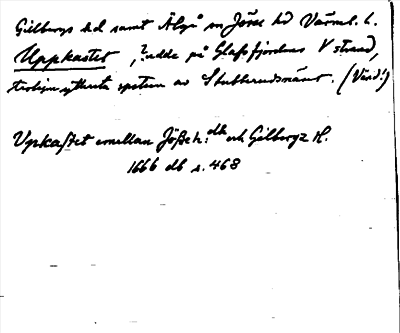 Gillbergs hd samt Älgå sn Jösse hd Värml. l.
Uppkastet, ? udde på Glafsfjordens V strand,
yttersta spetsen av Stubberudsnäset. (Värd!)
Upkastet emellan Jösseh: dh och Gilbergz H.
1666 db s. 468